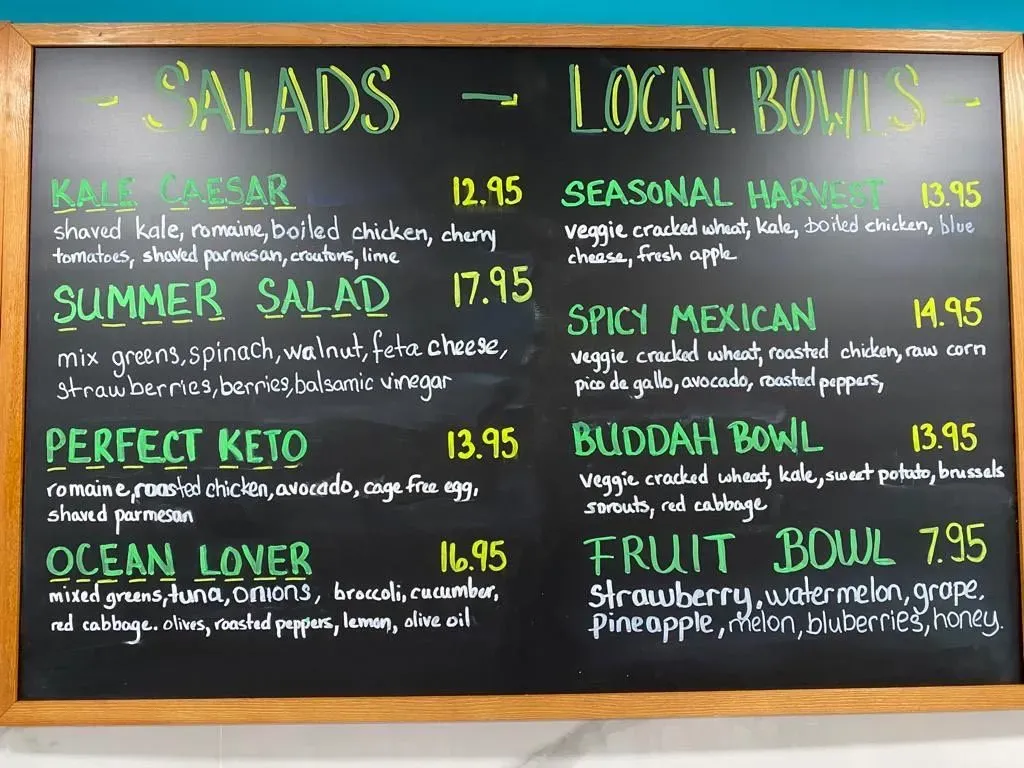 - SALADS -
KALE CAESAR 12.95
shaved kale, romaine, boiled chicken, cherry
tomatoes, shaved parmesan, croutons, lime
SUMMER SALAD 17.95
mix greens, spinach, walnut, feta cheese,
strawberries, berries, balsamic vinegar
PERFECT KETO 13.95
romaine, roasted chicken, avocado, cage free egg,
shaved parmesan
OCEAN LOVER 16.95
mixed greens, tuna, onions, broccoli, cucumber,
red cabbage. olives, roasted peppers, lemon, olive oil
LOCAL BOWLS -
SEASONAL HARVEST 13.95
veggie cracked wheat, kale, boiled chicken, blue
cheese, fresh apple
SPICY MEXICAN 14.95
veggie cracked wheat, roasted chicken, raw corn
pico de gallo, avocado, roasted peppers,
BUDDAH BOWL 13.95
veggie cracked wheat, kale, sweet potato, brussels
sprouts, red cabbage
FRUIT BOWL 7.95
strawberry, watermelon, grape.
pineapple, melon, bluberries, honey.